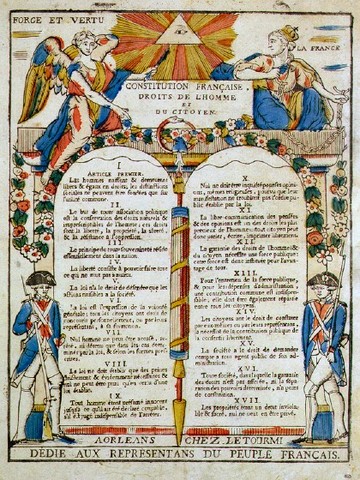 FORCE ET VERTU
LA FRANCE
CONSTITUTION FRANÇAISE.
DROITS DE LHOMME
ET
DU CITOYEN.
I
ARTICLE PREMIER.
Les hommes naissent & demeurent
libres & égaux en droits, les distinctions
sociales ne peuvent être fondées que sur
l'utilité commune.
II.
Le but de toute association politique
est la conservation des droits naturels &
imprescriptibles de l'homme; ces droits
sont la liberté, la propriété, la sûreté,
& la résistance à l'oppression.
III.
Le principe de toute souveraineté réside
essentiellement dans la nation.
IV.
La liberté consiste à pouvoir faire tout
ce qui ne nuit pas
V.
La loi n'a le droit de défendre que les
actions nuisibles à la société.
VI.
La loi est l'expression de la volonté
générale; tous les citoyens ont droit de
concourir personnellement, ou par leurs
VII.
Nul homme ne peut être accusé,
ni détenu que dans les cas
par la loi, & selon les formes
VIII.
La loi ne doit établir que des peines
strictement & évidemment nécessaires, &
nul ne peut être puni qu'en vertu d'une
loi
IX.
Tout homme étant présumé innocent
jusqu'à ce qu'il ait été déclaré coupable,
X.
Nul ne doit être inquiété pour ses opinions,
mêmes religieuses, pourvu que leur
manifestation ne trouble pas l'ordre public
établi par la loi.
XI.
La libre communication des pensées
& des opinions est un des droits les plus précieux
de l'homme; tout citoyen peut
parler, écrire, imprimer librement.
XII.
La garantie des droits de l'homme & du
citoyen nécessite une force publique;
cette force est donc instituée pour l'avantage
de tous.
XIII.
Pour l'entretien de la force publique,
& pour les dépenses d'administration,
une contribution commune est indispensable;
elle doit être également répartie
entre tous les citoyens.
XIV.
Les citoyens ont le droit de constater
par eux-mêmes ou par leurs représentans,
la nécessité de la contribution publique
de la consentir librement.
XV.
La société a le droit de demander
compte à tout agent public de son administration.
XVI.
Toute société, dans laquelle la garantie
des droits n'est pas assurée, ni la séparation
des pouvoirs déterminée, n'a point
de constitution.
XVII.
Les propriétés étant un droit inviolable
& sacré, nul ne peut en être privé.
A ORLEANS CHEZ LETOURMI
DÉDIÉ AUX REPRÉSENTANS DU PEUPLE FRANÇAIS.